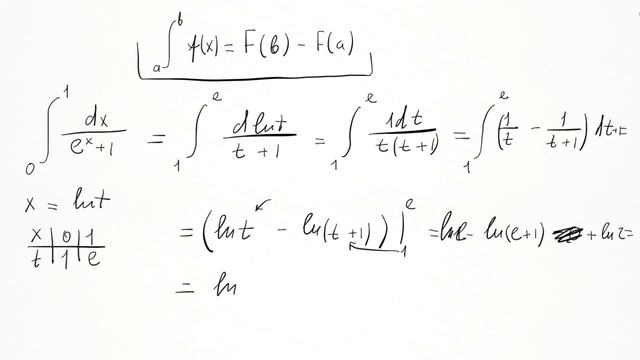 ∫_a^b f(x) = F(b) - F(a)
∫_0^1 dx/(e^x+1) = ∫_1^e d ln t/(t+1) = ∫_1^e 1dt/(t(t+1)) = ∫_1^e (1/t - 1/(t+1)) dt =
x = ln t
x | 0 | 1
t | 1 | e
= (ln t - ln(t+1)) |_1^e = ln e - ln(e+1) + ln 2 =
= ln